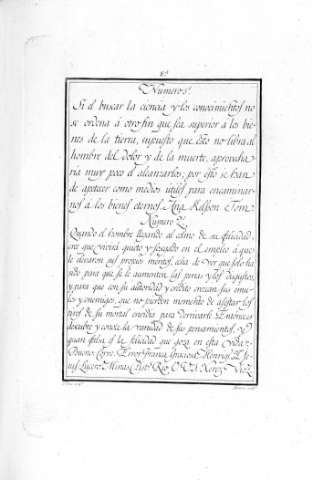 85
Numero 1.
Si el buscar la ciencia y los conocimientos no
se ordena á otro fin que sea superior á los bie-
nes de la tierra, supuesto que esto no libra al
hombre del dolor y de la muerte, aprovecha-
ria muy poco el alcanzarlos; por esto se han
de apetecer como medios utiles para encaminar-
nos á los bienes eternos. Ana Melsson Tom
Numero 2.
Quando el hombre llegando al colmo de su felicidad
cree que vivirá quieto y sosegado en el empleo á que
le elevaron sus propios meritos, echa de ver que solo ha
sido para que se le aumenten las penas y los disgustos,
y para que con su autoridad y credito crezcan sus emu-
los y enemigos, que no pierden momento de asestar los
tiros de su mortal envidia para derrivarle. Entonces
descubre y conoce la vanidad de sus pensamientos, y
quan falsa es la felicidad que goza en esta vida.
Bueno, Corro, Error, Franca, Graciosa, Monrroy,
Lucero, Minas, Rio, Xerez,